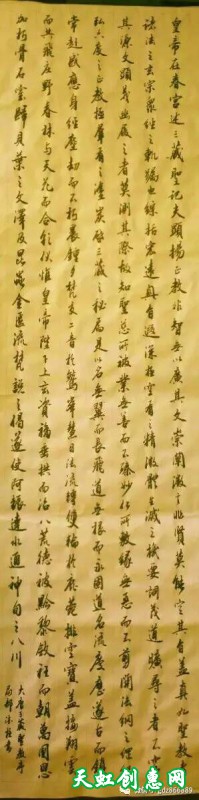 皇帝在春宮述三藏聖記夫顯揚正教非智無以廣其文崇闡微言非賢莫能定其旨蓋真如聖教者
諸法之玄宗眾經之軌躅也綜括宏遠奧旨遐深極空有之精微體生滅之機要詞茂道曠尋之者不究
其源文顯義幽履之者莫測其際故知聖慈所被業無善而不臻妙化所敷緣無惡而不剪開法網之綱紀
弘六度之正教拯群有之塗炭啟三藏之秘扃是以名無翼而長飛道無根而永固道名流慶歷遂古而鎮
常赴感應身經塵劫而不朽晨鐘夕梵交二音於鷲峰慧日法流轉雙輪於鹿苑排空寶蓋接翔雲
而共飛莊野春林與天花而合彩伏惟皇帝陛下上玄資福垂拱而治八荒德被黔黎斂衽而朝萬國恩
加朽骨石室歸貝葉之文澤及昆蟲金匱流梵說之偈遂使阿耨達水通神甸之八川
大唐三藏聖教序
局部
天虹创惠网